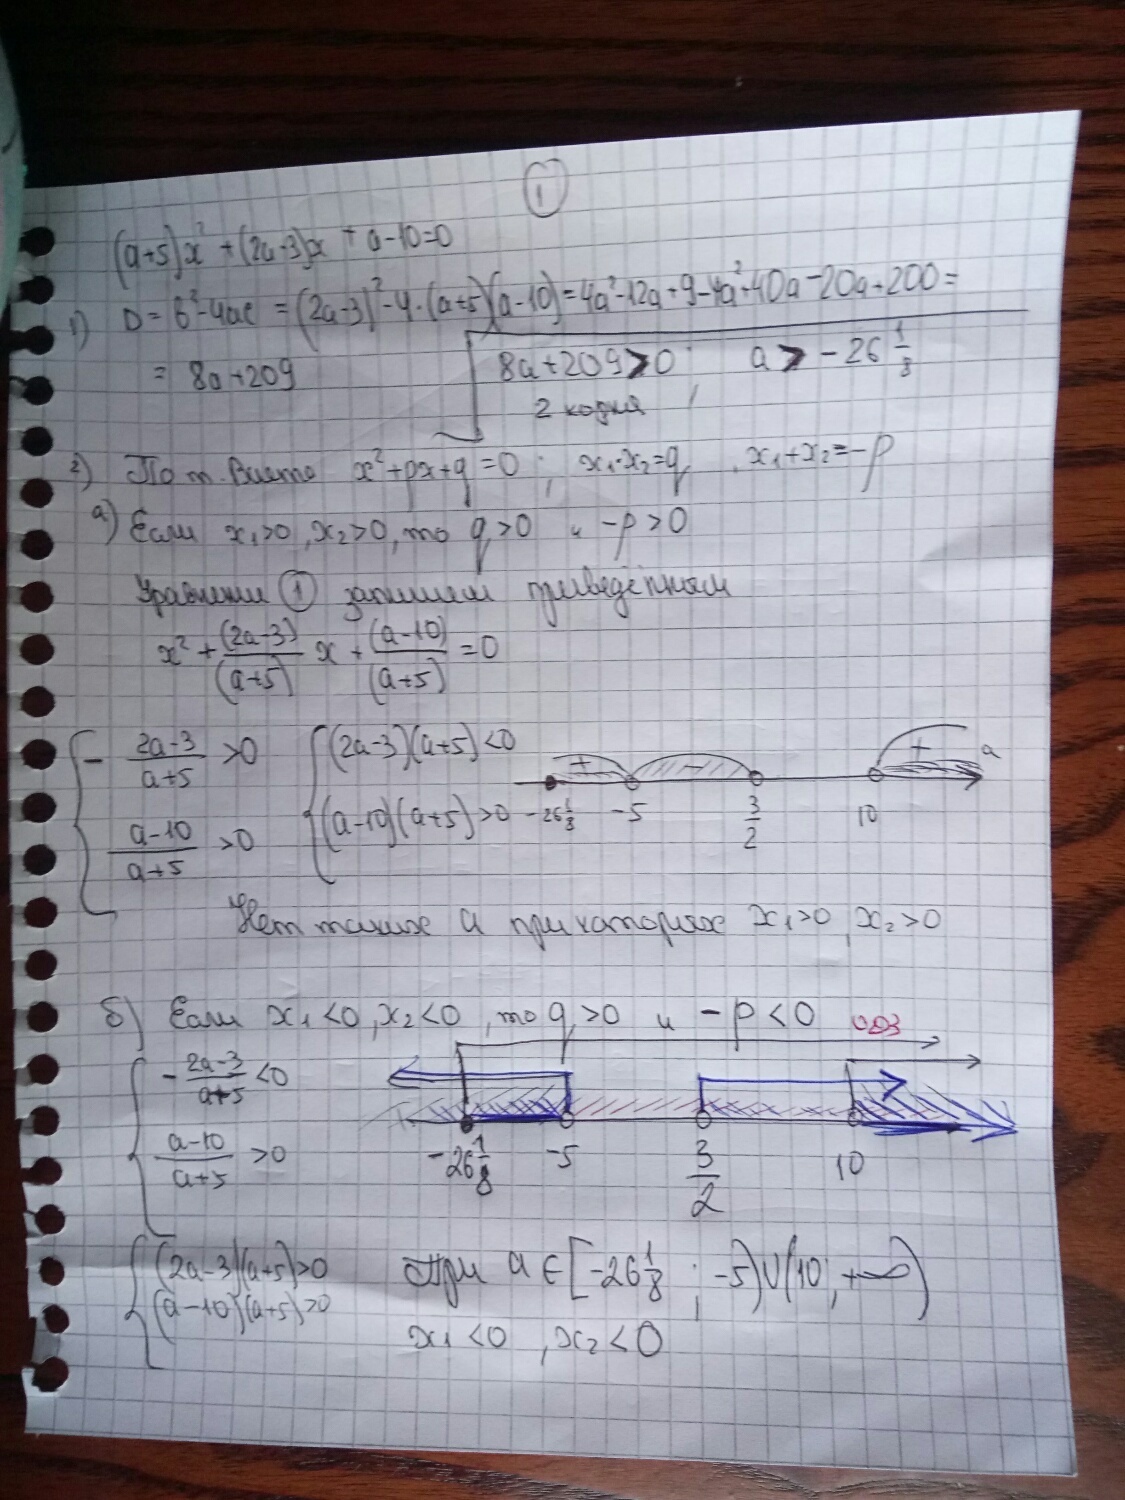 ①
(a+5)x² + (2a-3)x + a-10=0
1) D = b²-4ac = (2a-3)²-4·(a+5)(a-10)=4a²-12a+9-4a²+40a-20a+200=
= 8a+209
8a+209>0 a > -26 1/8
2 корня
2) По т. Виета x²+px+q=0; x₁·x₂=q, x₁+x₂=-p
а) Если x₁>0, x₂>0, то q>0 и -p>0
Уравнении ① запишем приведённым
x² + (2a-3)/(a+5) x + (a-10)/(a+5) = 0
- (2a-3)/(a+5) >0 (2a-3)(a+5)<0
(a-10)/(a+5) >0 (a-10)(a+5)>0
+ - + a
-26 1/8 -5 3/2 10
Нет таких a при которых x₁>0, x₂>0
б) Если x₁<0, x₂<0, то q>0 и -p<0 ОДЗ
- (2a-3)/(a+5) <0
(a-10)/(a+5) >0
-26 1/8 -5 3/2 10
(2a-3)(a+5)>0
(a-10)(a+5)>0
При a∈[-26 1/8; -5)∪(10; +∞)
x₁<0, x₂<0